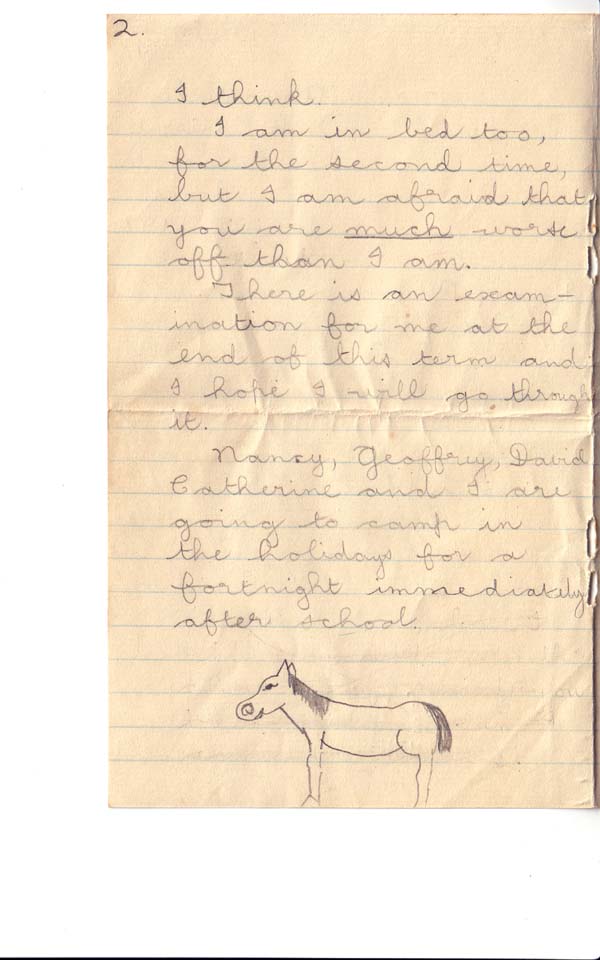 2.
I think.
I am in bed too,
for the second time,
but I am afraid that
you are much worse
off than I am.
There is an exam-
ination for me at the
end of this term and
I hope I will go through
it.
Nancy, Geoffrey, David
Catherine and I are
going to camp in
the holidays for a
fortnight immediately
after school.